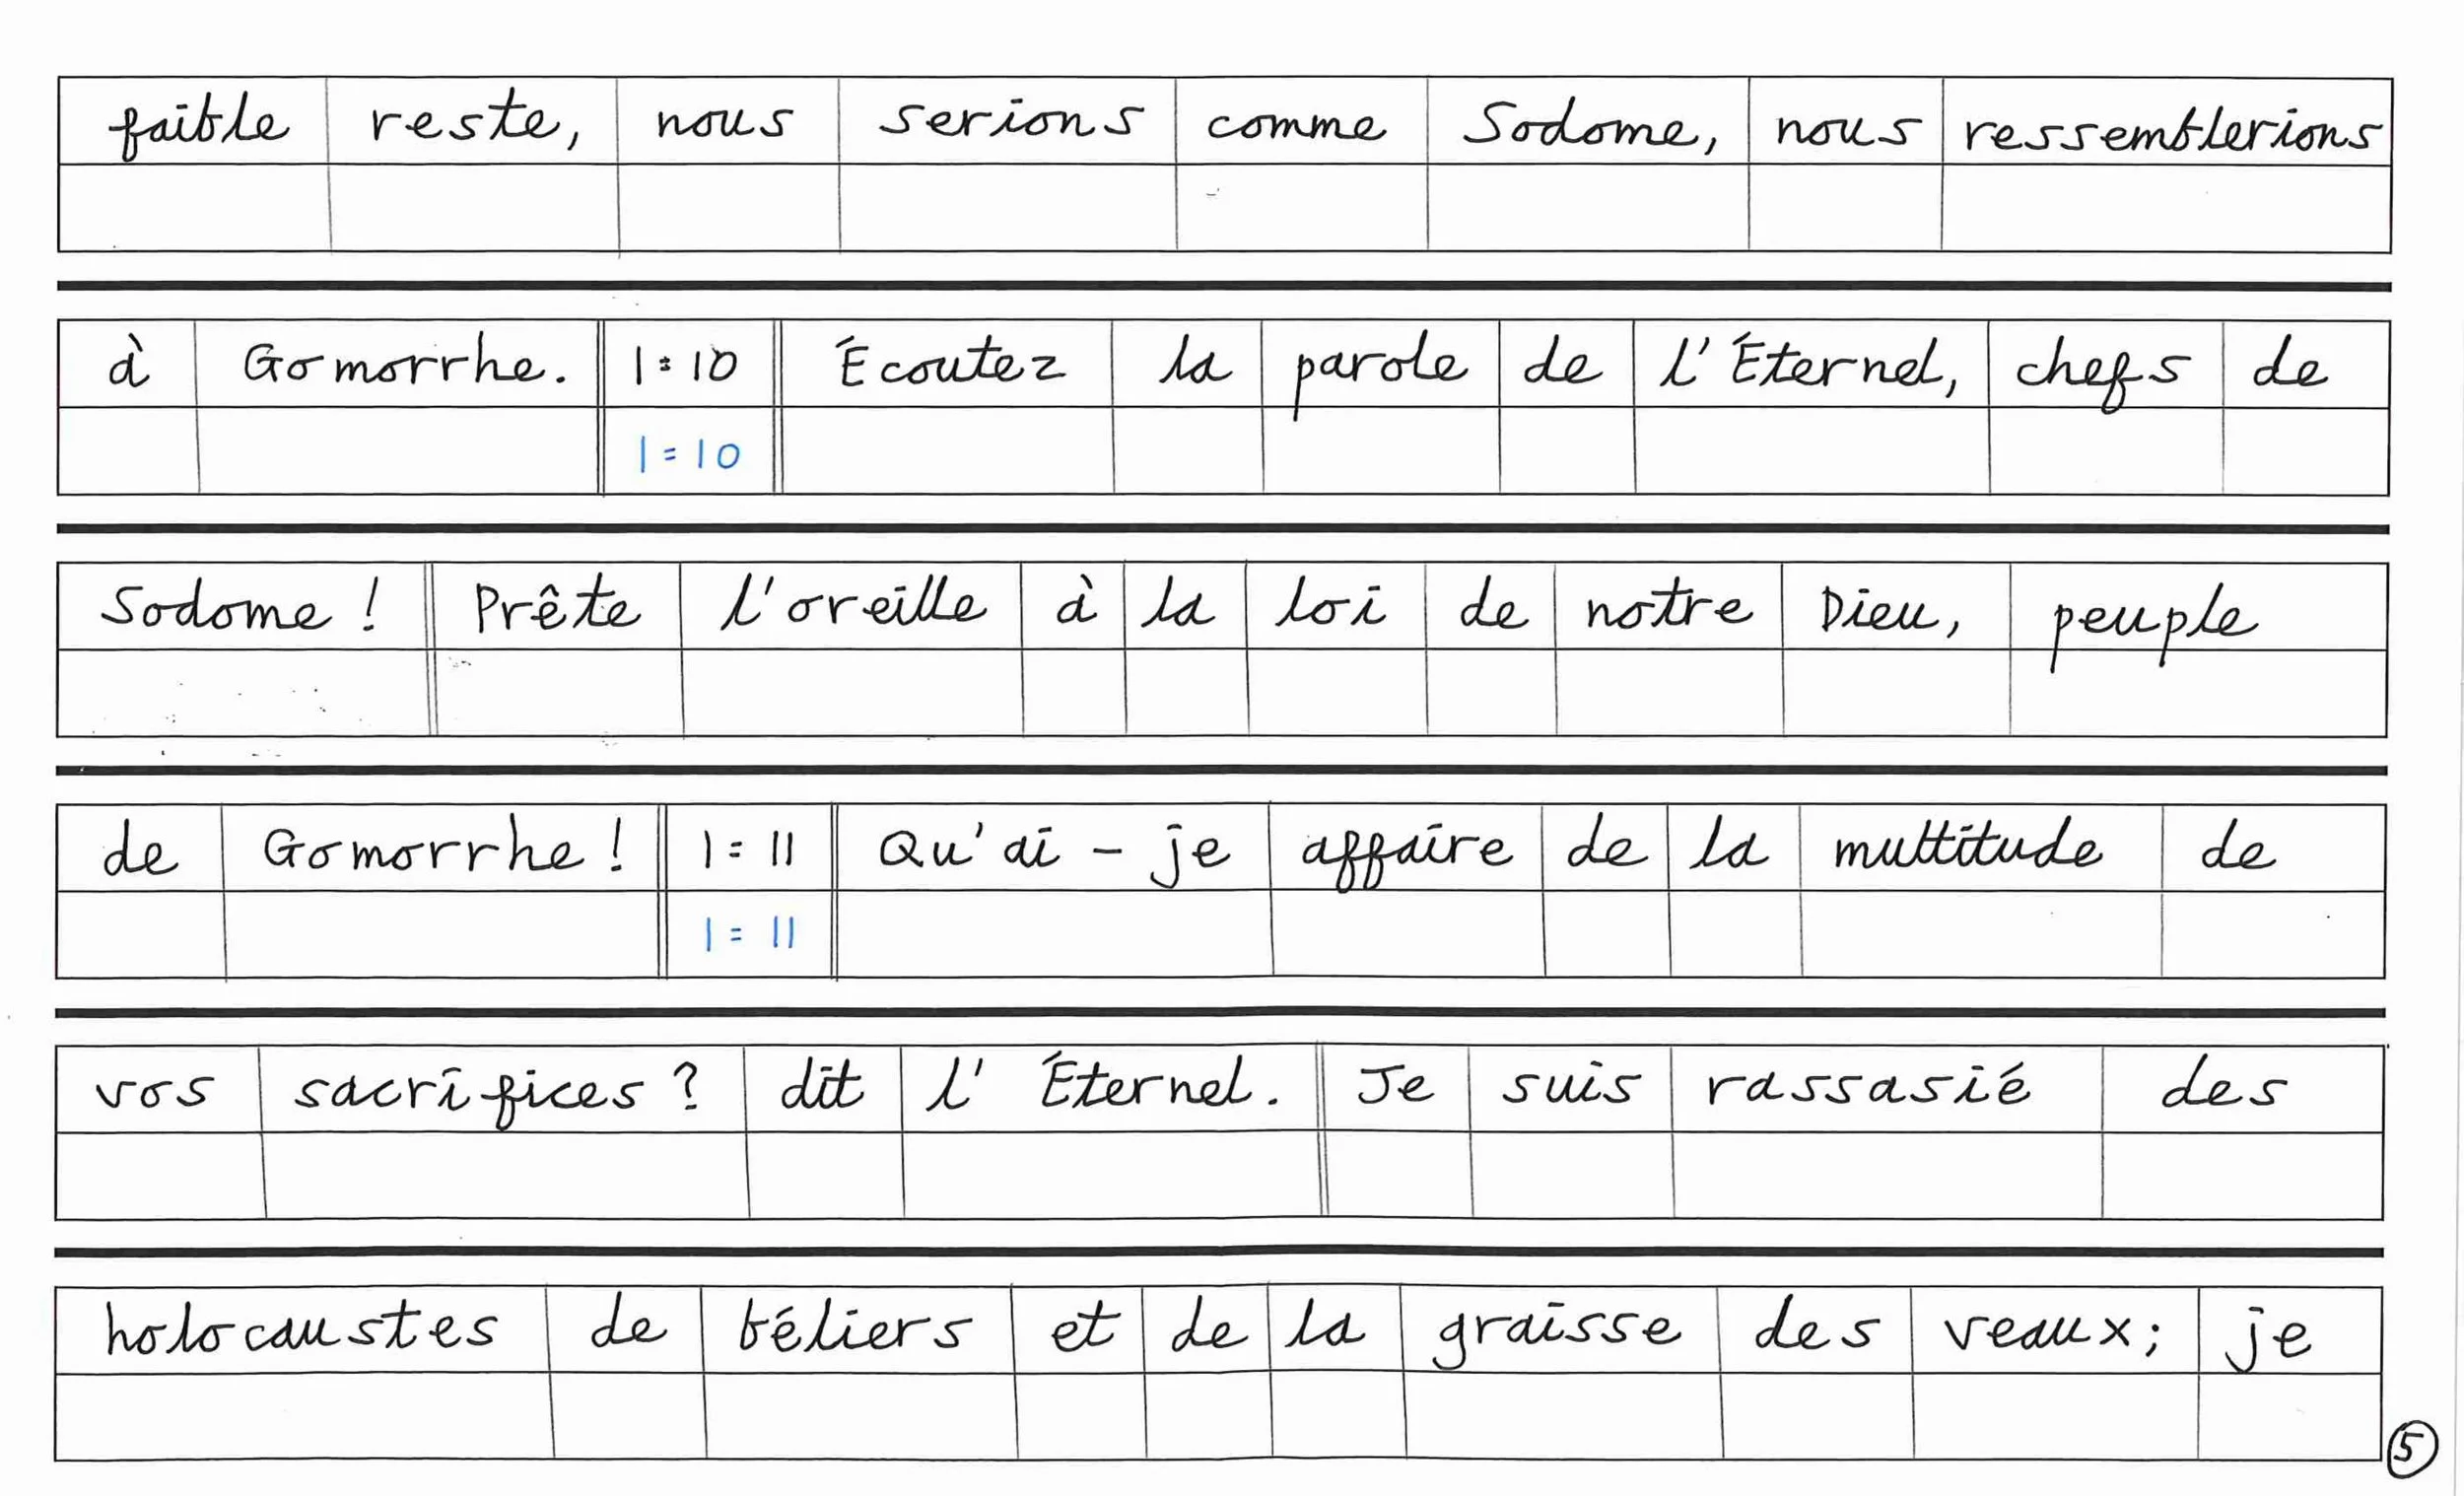 faible reste, nous serions comme Sodome, nous ressemblerions
à Gomorrhe. 1:10 Écoutez la parole de l'Éternel, chefs de
1:10
Sodome ! Prête l'oreille à la loi de notre Dieu, peuple
de Gomorrhe ! 1:11 Qu'ai-je affaire de la multitude de
1:11
vos sacrifices ? dit l'Éternel. Je suis rassasié des
holocaustes de béliers et de la graisse des veaux; je
5